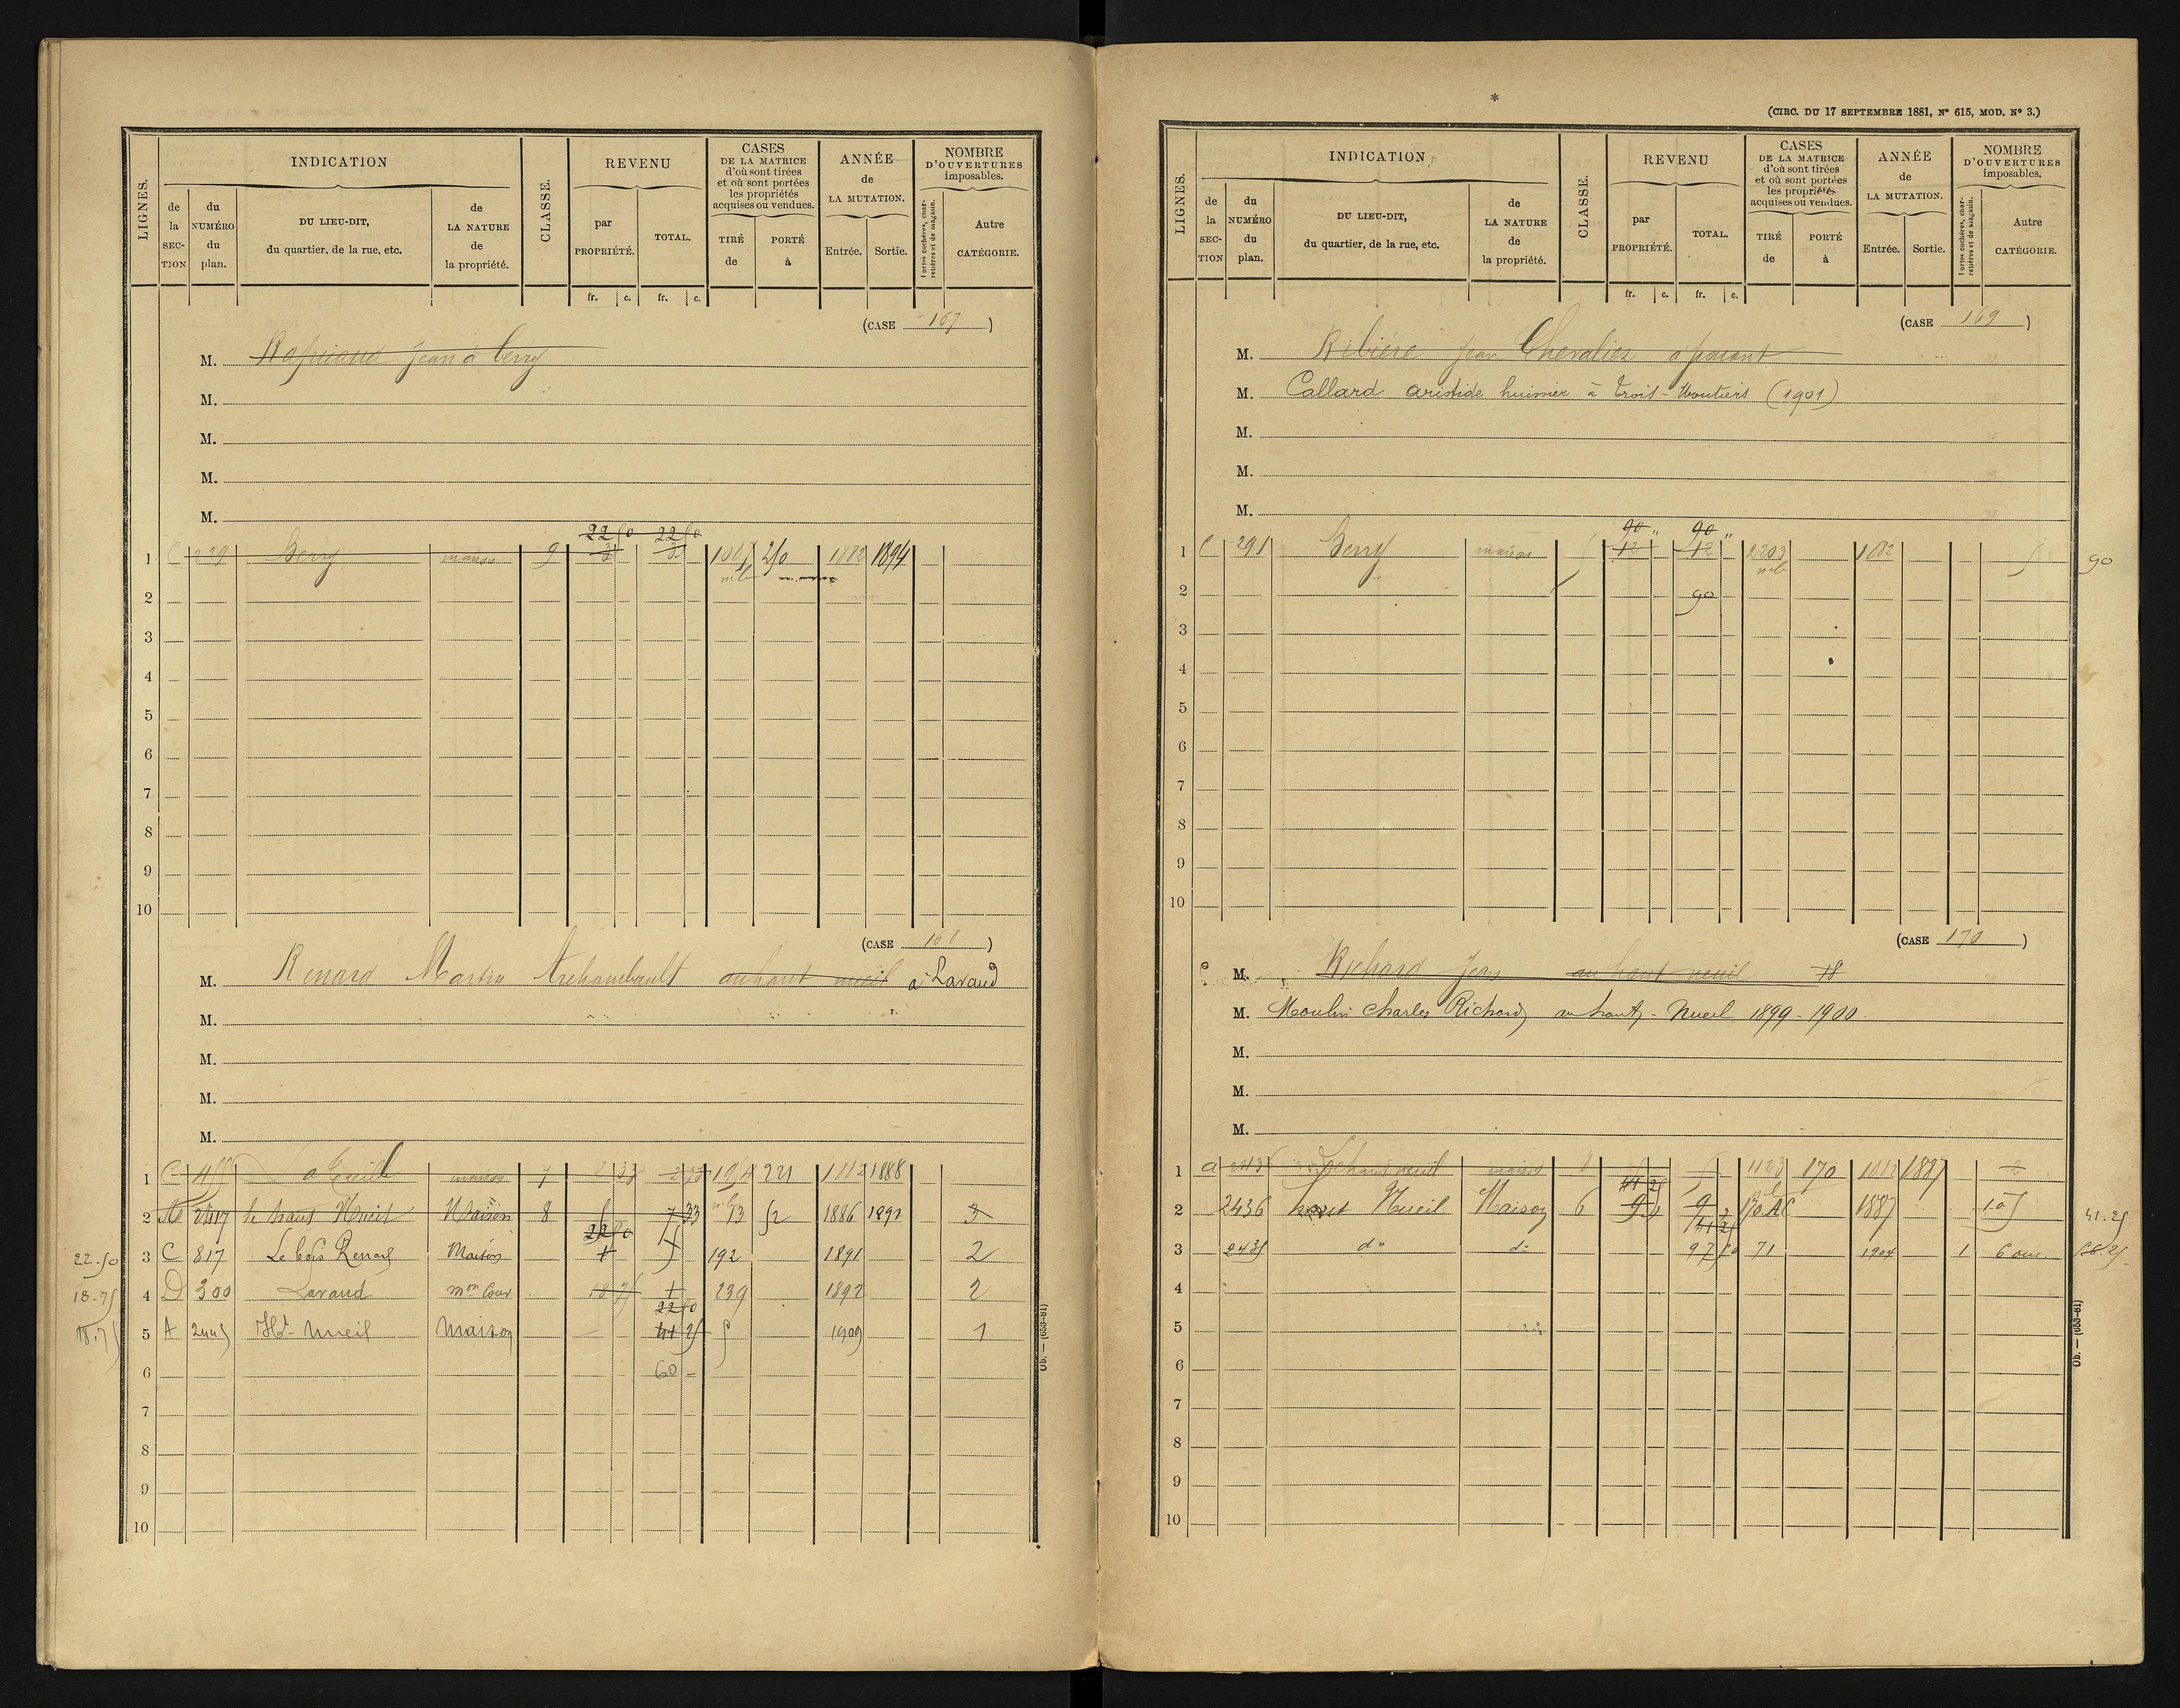 LIGNES.
INDICATION
de la SECTION
du NUMÉRO du plan.
DU LIEU-DIT, du quartier, de la rue, etc.
de LA NATURE de la propriété.
CLASSE.
REVENU
par PROPRIÉTÉ.
TOTAL.
CASES DE LA MATRICE d'où sont tirées et où sont portées les propriétés acquises ou vendues.
TIRÉ de
PORTÉ à
ANNÉE de LA MUTATION.
Entrée.
Sortie.
NOMBRE D'OUVERTURES imposables.
Portes cochères, charretières et de magasin.
Autre CATÉGORIE.
fr. c. fr. c.
(CASE 167)
M. Jean à Berry
M.
M.
M.
M.
22 50 22 50
1 C 229 Berry maison 9 3 3 250 1882 1894
2
3
4
5
6
7
8
9
10
(CASE 168)
M. Renard Martin Archambault au haut nueil à Lavaud
M.
M.
M.
M.
1 C maison 7 221 1882 1888
2 2417 le haut Nueil Maison 8 7 33 13 52 1886 1892 3
22 50
22.50 3 C 817 Le bois Renard Maison 192 1891 2
18.75 4 D 300 Lavaud mon Cour 18 75 239 1892 2
22 50
18.75 5 A 2445 Ht Nueil Maison 41 25 5 1909 1
6 60 =
7
8
9
10
*
(CIRC. DU 17 SEPTEMBRE 1881, N° 615, MOD. N° 3.)
LIGNES.
INDICATION
de la SECTION
du NUMÉRO du plan.
DU LIEU-DIT, du quartier, de la rue, etc.
de LA NATURE de la propriété.
CLASSE.
REVENU
par PROPRIÉTÉ.
TOTAL.
CASES DE LA MATRICE d'où sont tirées et où sont portées les propriétés acquises ou vendues.
TIRÉ de
PORTÉ à
ANNÉE de LA MUTATION.
Entrée.
Sortie.
NOMBRE D'OUVERTURES imposables.
Portes cochères, charretières et de magasin.
Autre CATÉGORIE.
fr. c. fr. c.
(CASE 169)
M. Ribière Jean Chevalier
M. Callard aristide huissier à Trois-Moutiers (1901)
M.
M.
M.
90 " 90 "
1 C 291 Berry maison 5 12 12 2203 1882 5 90
2 90
3
4
5
6
7
8
9
10
(CASE 170)
M. Richard Jean au haut nueil
M. Moulin Charles Richard au haut-Nueil 1899-1900
M.
M.
M.
1 a 2436 Le haut nueil maison 8 1123 170 1882 1887
41 25
2 2436 haut Nueil Maison 6 9 9 170 1887 41.25
41 25
3 2435 do do 97 50 71 1904 1 6 56.25
4
5
6
7
8
9
10
Ob. — (653-81)
Ob. — (653-81)